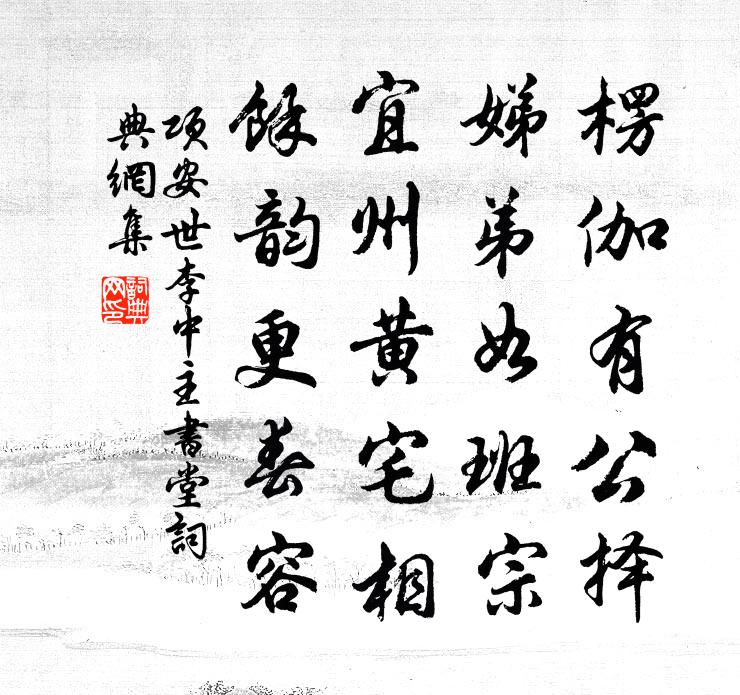 楞伽有公择
娣弟如班宗
宜州黄宅相
餘韵更春容
项安世李中主書堂詞
典網集
詞典
网印